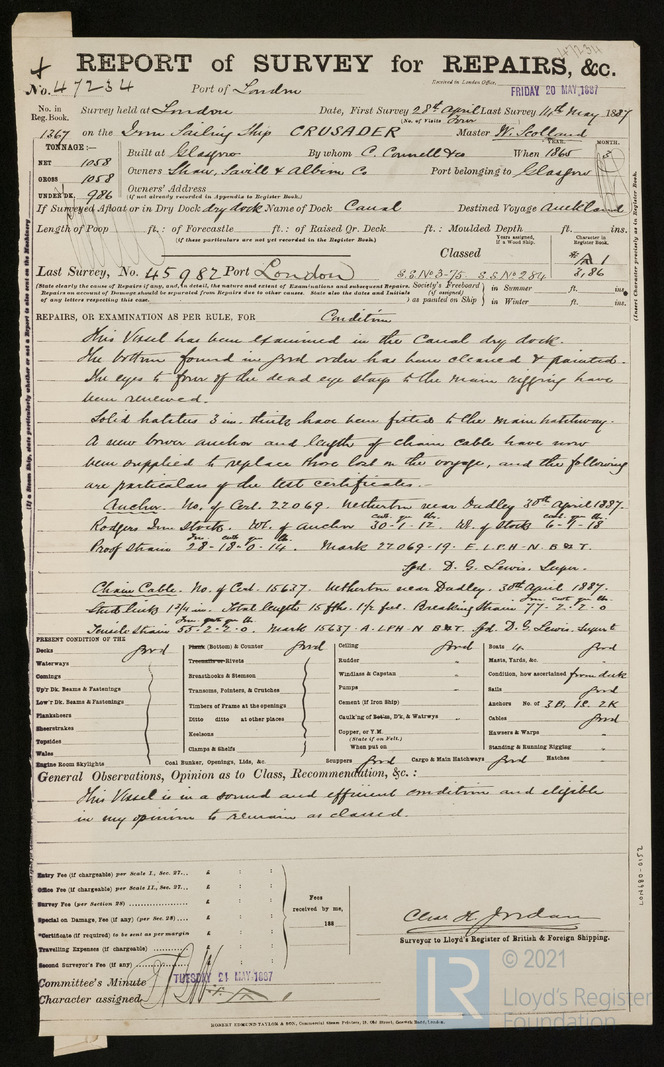 47234
REPORT of SURVEY for REPAIRS, &c.
No. 47234 Port of London Received in London Office, FRIDAY 20 MAY, 1887
No. in Reg. Book. Survey held at London Date, First Survey 28th April Last Survey 14th May 1887
(No. of Visits Four)
1367 on the Iron Sailing Ship CRUSADER Master W. Scotland
TONNAGE:— YEAR. MONTH.
NET 1058 Built at Glasgow By whom C. Connell & Co When 1865
GROSS 1058 Owners Shaw, Savill & Albion Co Port belonging to Glasgow
UNDER DK. 986 Owners' Address
(if not already recorded in Appendix to Register Book.)
If Surveyed Afloat or in Dry Dock dry dock Name of Dock Canal Destined Voyage Auckland
Length of Poop ft.: of Forecastle ft.: of Raised Qr. Deck ft.: Moulded Depth ft. ins.
(if these particulars are not yet recorded in the Register Book.)
Years assigned, if a Wood Ship. Character in Register Book.
Classed A 1
Last Survey, No. 45982 Port London S.S. No 3-75 S.S. No 2 84 3,86
(State clearly the cause of Repairs if any, and, in detail, the nature and extent of Examinations and subsequent Repairs.
Repairs on account of Damage should be separated from Repairs due to other causes. State also the dates and Initials
of any letters respecting this case.
Society's Freeboard (if assigned) as painted on Ship in Summer ft. ins.
in Winter ft. ins.
REPAIRS, OR EXAMINATION AS PER RULE, FOR Condition
This Vessel has been examined in the Canal dry dock.
The bottom found in good order has been cleaned & painted.
The eyes to four of the dead eye stays to the main rigging have
been renewed.
Solid hatches 3 in. thick have been fitted to the main hatchway.
A new bower anchor and length of chain cable have now
been supplied to replace those lost on the voyage, and the following
are particulars of the test certificates.
Anchor. No. of Cert. 22069. Netherton near Dudley 30th April 1887.
Rodgers Iron Stock. Wt. of Anchor 30-1-12. Wt. of Stock 6-9-18
Proof Strain 28-18-0-14. Mark 22069-19. E. L.P.H-N. B&T.
Sgd. D. G. Lewis. Super.
Chain Cable. No. of Cert. 15637. Netherton near Dudley. 30th April 1887.
Stud links 1 3/4 in. Total length 15 fths. 1 1/2 feet. Breaking Strain 77-2-2-0
Tensile Strain 55-2-2-0. Mark 15637-A.LPH-N B&T. Sgd. D. G. Lewis. Supert
PRESENT CONDITION OF THE
Decks Good
Waterways
Comings
Up'r Dk. Beams & Fastenings
Low'r Dk. Beams & Fastenings
Planksheers
Sheerstrakes
Topsides
Wales
Engine Room Skylights
Plank (Bottom) & Counter Good
Treenails or Rivets
Breasthooks & Stemson
Transoms, Pointers, & Crutches
Timbers of Frame at the openings
Ditto ditto at other places
Keelsons
Clamps & Shelfs
Coal Bunker, Openings, Lids, &c.
Ceiling Good
Rudder "
Windlass & Capstan "
Pumps "
Cement (if Iron Ship) "
Caulk'ng of Botm, D'k, & Watrwys "
Copper, or Y.M.
(State if on Felt.)
When put on
Scuppers Good Cargo & Main Hatchways Good Hatches "
Boats 4 Good
Masts, Yards, &c. "
Condition, how ascertained from deck
Sails Good
Anchors No. of 3B. 1S. 2K
Cables Good
Hawsers & Warps "
Standing & Running Rigging "
General Observations, Opinion as to Class, Recommendation, &c.:
This Vessel is in a sound and efficient condition and eligible
in my opinion to remain as classed.
Entry Fee (if chargeable) per Scale I., Sec. 27... £ : :
Office Fee (if chargeable) per Scale II., Sec. 27... £ : :
Survey Fee (per Section 28) £ : :
Special on Damage, Fee (if any) (per Sec. 28).... £ : :
*Certificate (if required) to be sent as per margin £ : :
Travelling Expenses (if chargeable) £ : :
Second Surveyor's Fee (if any) £ : :
Fees received by me, 188
Chas. H. Jordan
Surveyor to Lloyd's Register of British & Foreign Shipping.
Committee's Minute TUESDAY 24 MAY 1887
Character assigned A 1
ROBERT EDMUND TAYLOR & SON, Commercial Steam Printers, 19, Old Street, Goswell Road, London.
(If a Steam Ship, state particularly whether or not a Report is also sent on the Machinery
(Insert Character precisely as in Register Book.)
LON680-0152
LR
© 2021
Lloyd's Register
Foundation